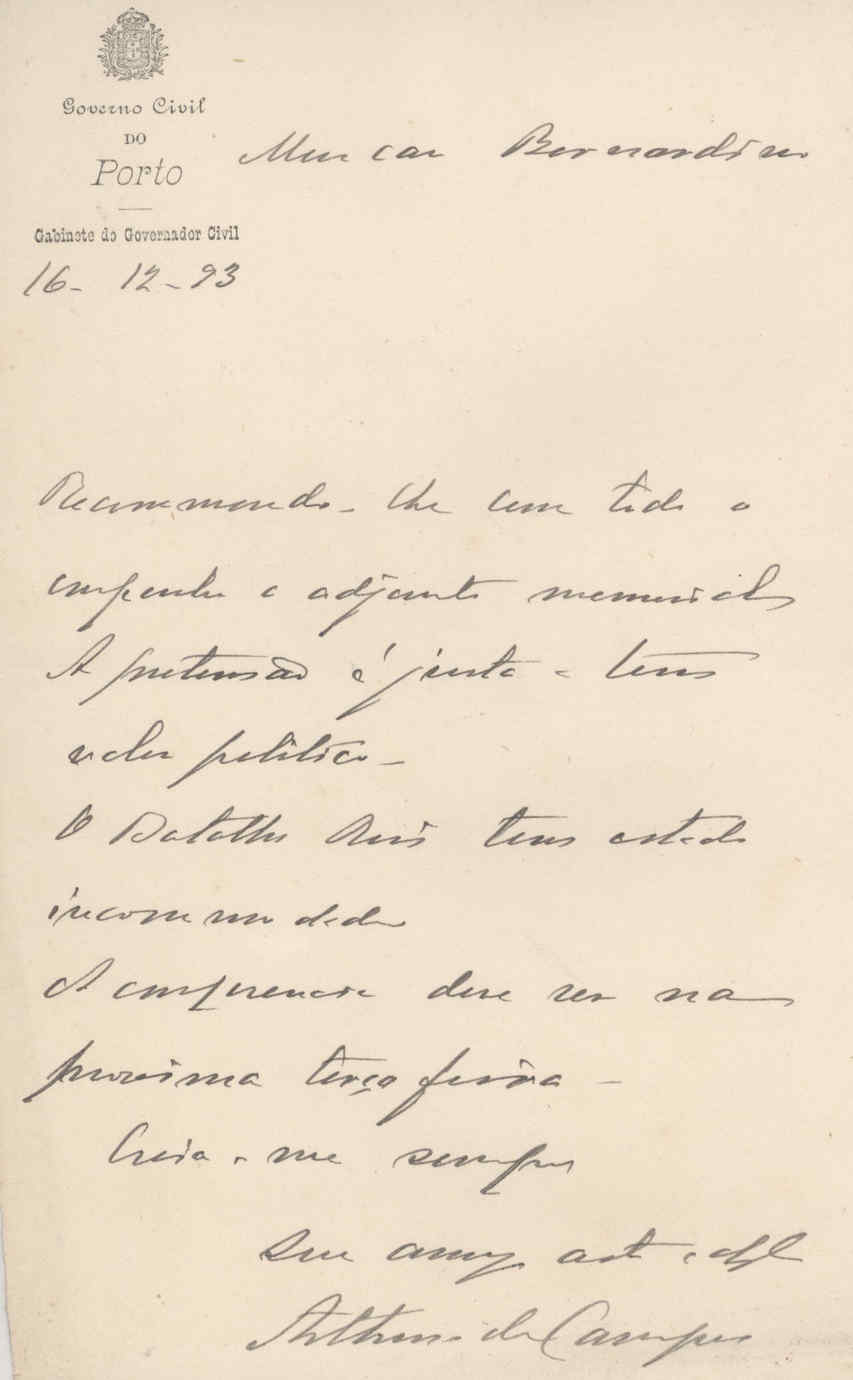 Governo Civil
DO
Porto
Gabinete do Governador Civil
16 - 12 - 93
Meu caro Bernardino
Recommendo-lhe com todo o
empenho o adjunto memorial
A pretensão é justa e tem
valor politico -
O Batalha Reis tem estado
incommodado
A conferencia deve ser na
proxima terça feira -
Creia-me sempre
Seu amigo
de Campos